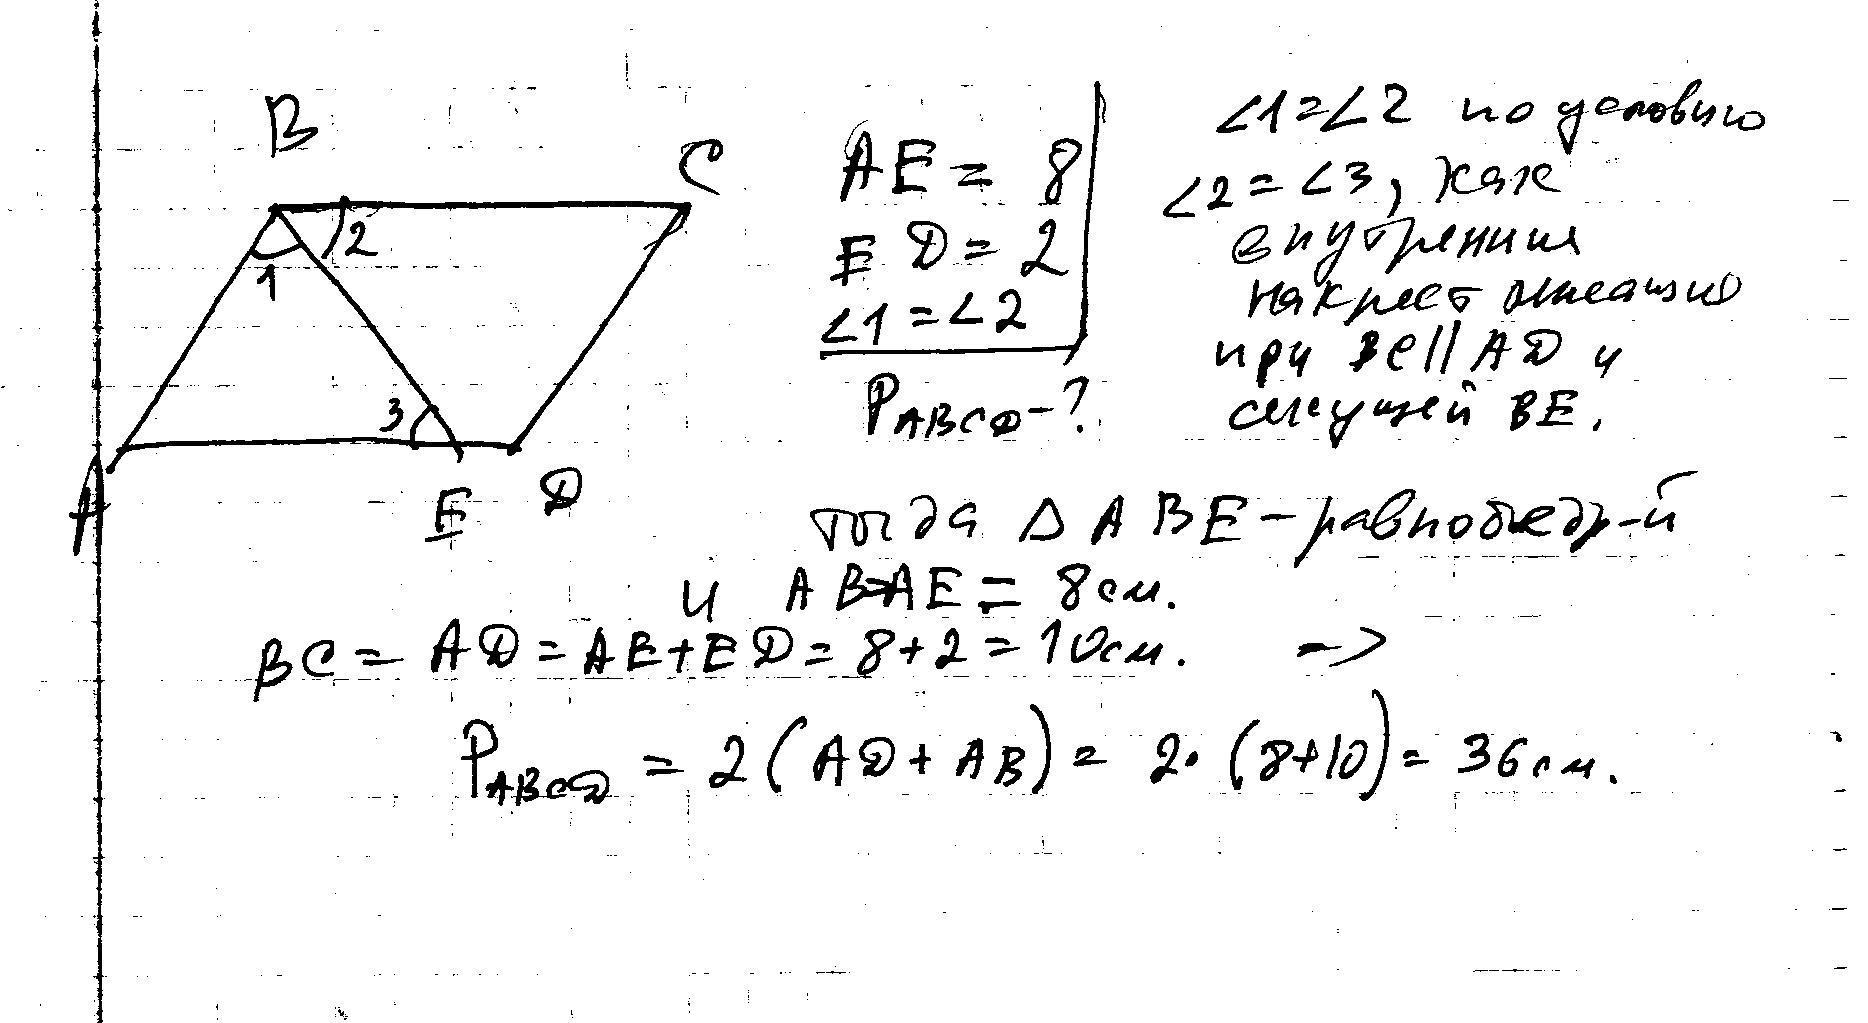 B
C
1
2
3
A
E
D
AE = 8
ED = 2
∠1 = ∠2
P ABCD - ?
∠1 = ∠2 по условию
∠2 = ∠3, как
внутренние
накрест лежащие
при BC || AD и
секущей BE.
тогда Δ ABE - равнобедр-й
и AB = AE = 8 см.
BC = AD = AE + ED = 8 + 2 = 10 см. ->
P ABCD = 2 (AD + AB) = 2 · (8 + 10) = 36 см.